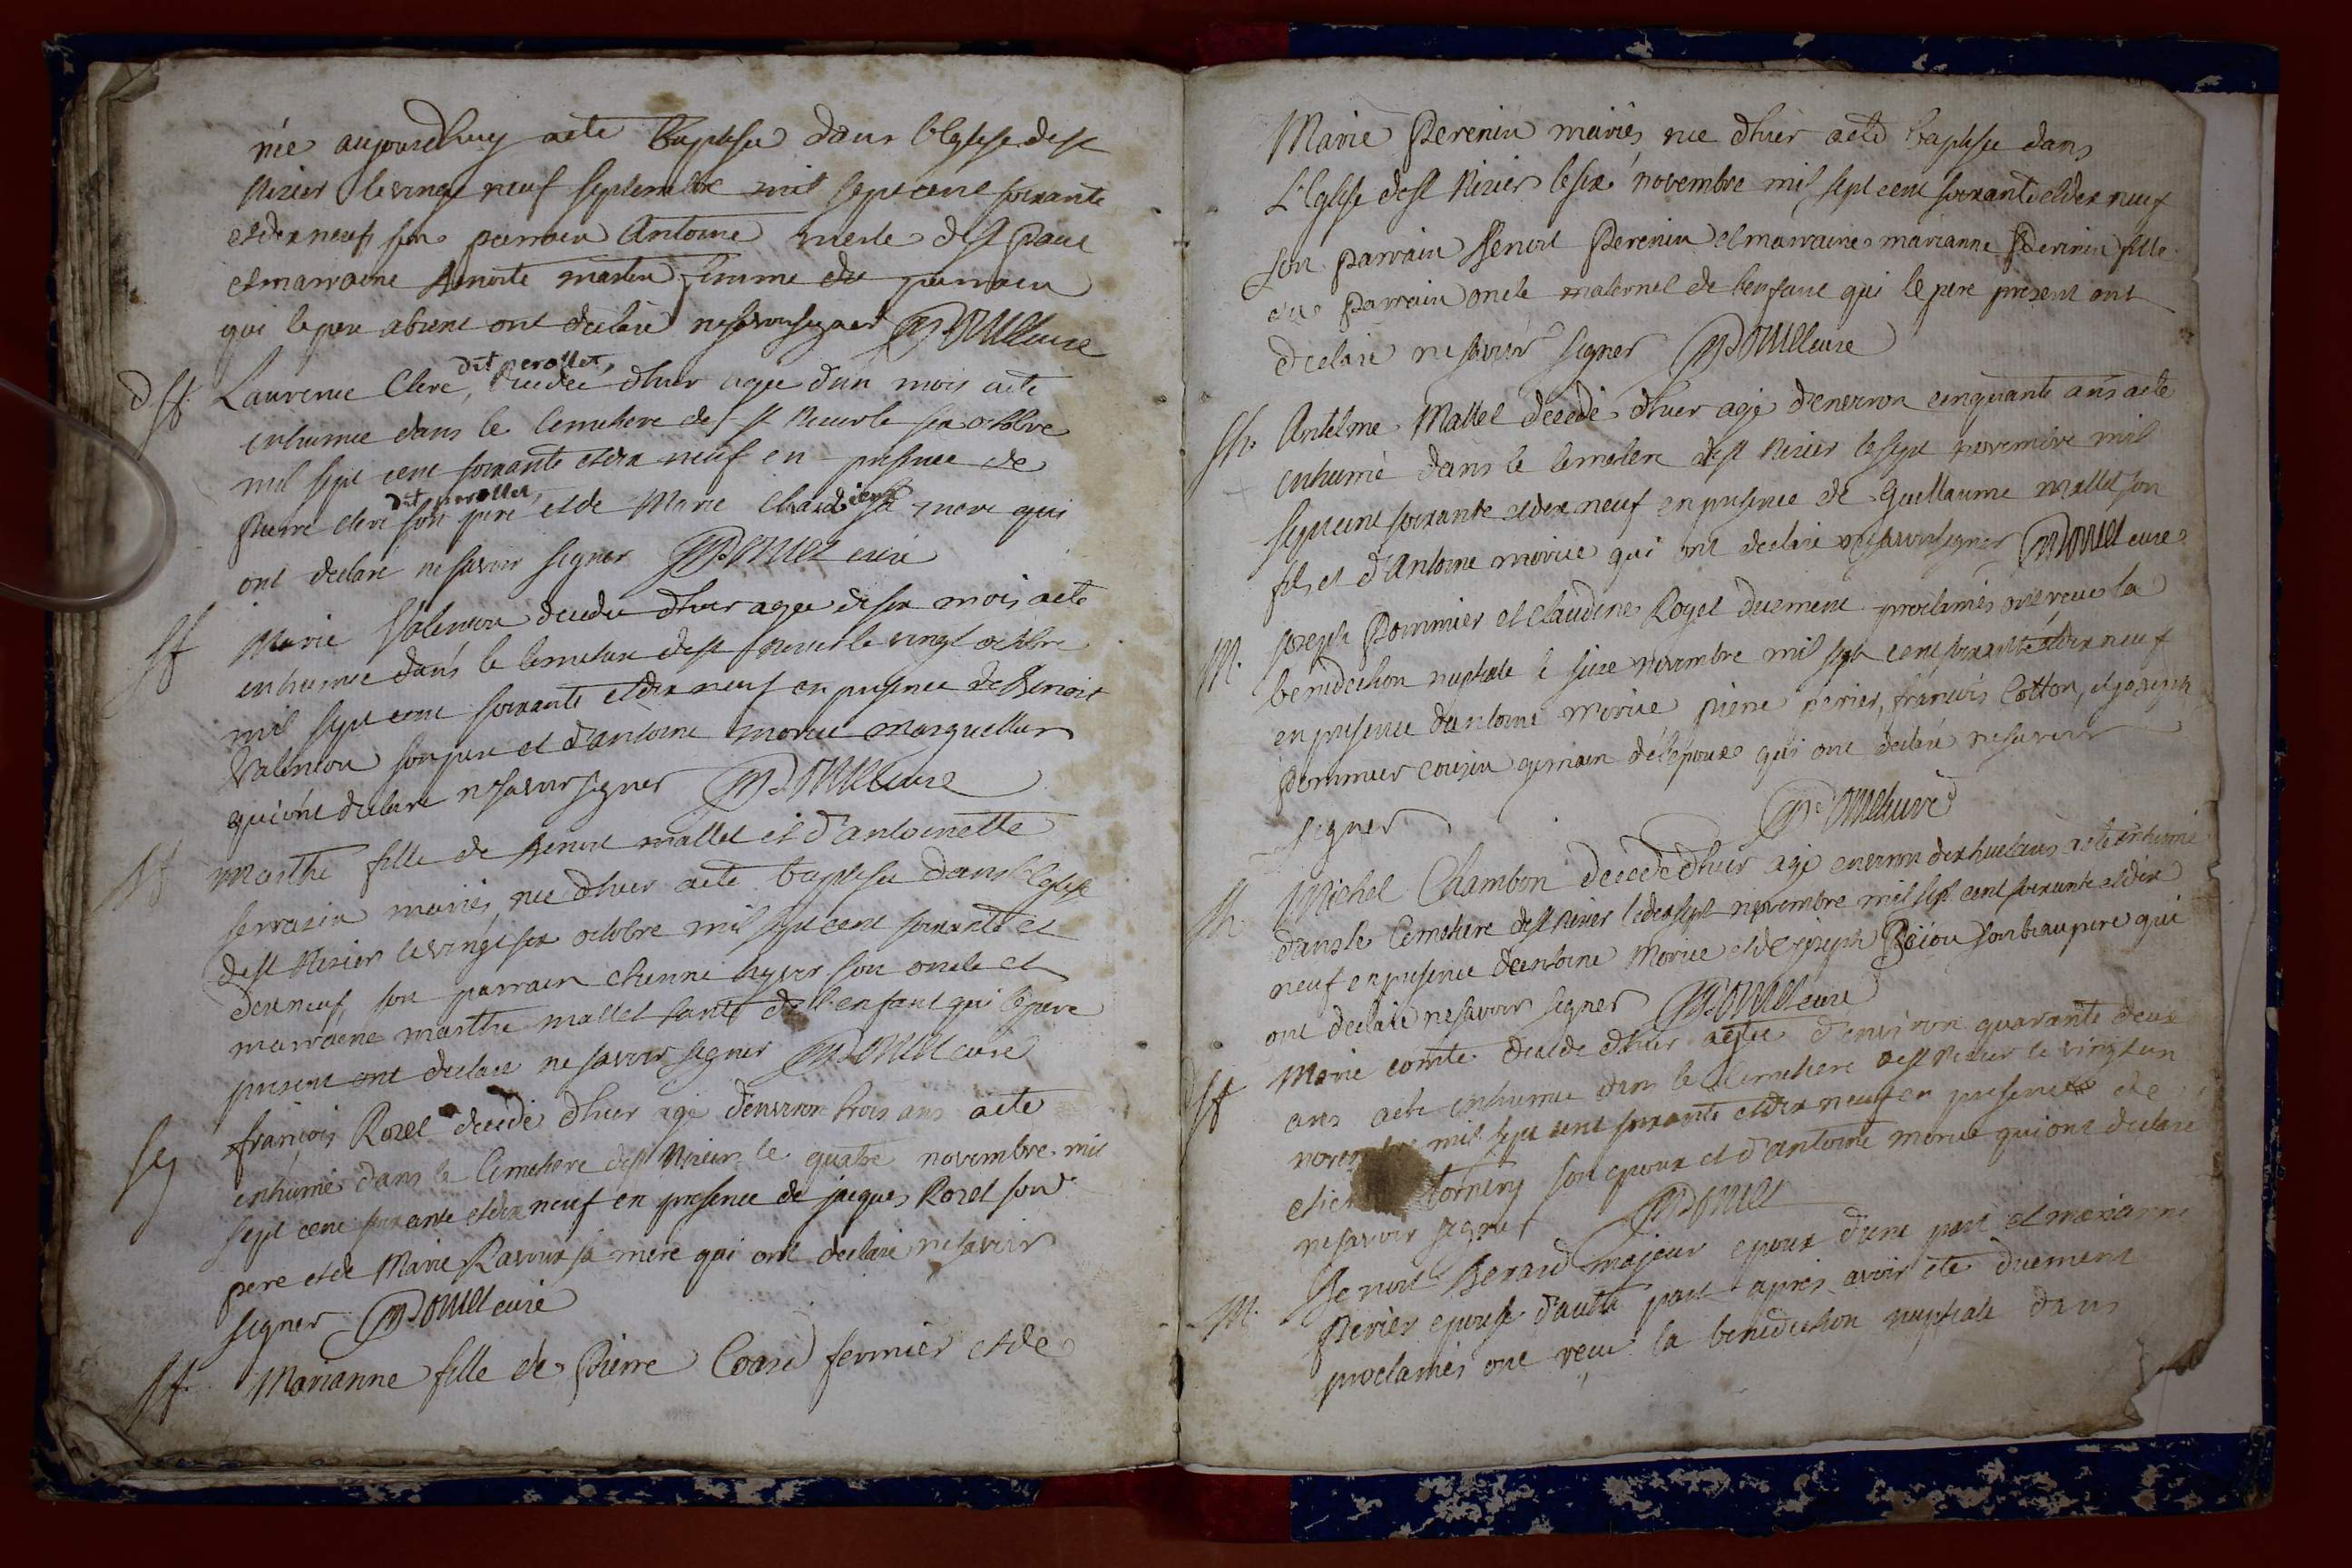 née aujourdhuy a ete baptisée dans leglise de st
Nizier le vingt neuf septembre mil sept cent soixante
et dix neuf son parrain Antoine merle de st Paul
et marraine Benoite martin femme du parrain
qui le pere absent ont declaré ne savoir signer cure
Laurence Clere, dit perollet, decedée dhier agée dun mois a ete
inhumée dans le Cemetiere de st Nizier le six octobre
mil sept cent soixante et dix neuf en presence de
Pierre clere dit perollet, son pere et de Marie sa mere qui
ont declaré ne savoir signer curé
sf Marie Valentin decedée dhier agée de six mois a ete
inhumée dans le Cemetiere de st Nizier le vingt octobre
mil sept cent soixante et dix neuf en presence de Benoit
Valentin son pere et d'antoine morice marguillier
qui ont declaré ne savoir signer cure
Marthe fille de Benoit mallet et d'antoinette
serrazin mariés, née dhier a ete baptisée dans l'Eglise
de st Nizier le vingt six octobre mil sept cent soixante et
dix neuf, son parrain etienne hyver son oncle et
marraine marthe mallet tante de l'enfant qui le pere
present ont declaré ne savoir signer curé
françois Rozel decedé dhier agé d'environ trois ans a ete
inhumé dans le Cimetiere de st Nizier le quatre novembre mil
sept cent soixante et dix neuf en presence de jacques Rozel son
pere et de Marie Ravoux sa mère qui ont declaré ne savoir
signer curé
sf. Marianne fille de Pierre Coard fermier et de
Marie Perenin mariés née dhier a eté baptisée dans
L'Eglise de st Nizier le six novembre mil sept cent soixante et dix neuf
son Parrain Benoit Perenin et marraine marianne Perenin fille
du Parrain oncle maternel de lenfant qui le pere present ont
declaré ne savoir signer cure
Sh. Antelme Mallet decedé dhier agé denviron cinquante ans a ete
inhumé dans le Cemetiere de st Nizier le sept novembre mil
sept cent soixante et dix neuf en presence de Guillaume mallet son
fils et d'Antoine morice qui ont declaré ne savoir signer cure
M. Joseph Pommier et Claudine Royet duement proclamés ont recu la
benediction nuptiale le seize novembre mil sept cent soixante et dix neuf
en presence dantoine morice pierre perier, francois Cotton, et joseph
Pommier cousin germain de lepoux qui ont declaré ne savoir
signer curé
Sh. Michel Chambon decedé dhier agé environ dix huit ans a ete inhumé
dans le Cemetiere de st Nizier le dix sept novembre mil sept cent soixante et dix
neuf en presence dantoine Morice et de joseph son beau pere qui
ont declaré ne savoir signer cure
sf Marie comte decedée dhier agée d'environ quarante deux
ans a ete inhumée dans le Cemetiere de st Nizier le vingt un
novembre mil sept cent soixante et dix neuf en presence de
son epoux et d'antoine morice qui ont declaré
ne savoir signer
M. Benoit Beraud majeur epoux d'une part et marianne
Perier epouse d'autre part apres avoir ete duement
proclamés ont recu la benediction nuptiale dans